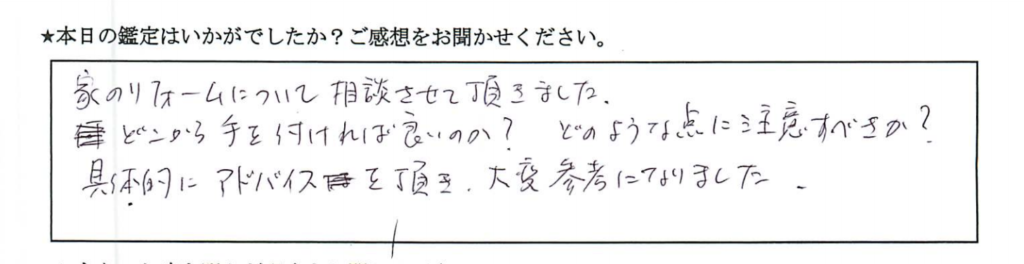 ★本日の鑑定はいかがでしたか？ご感想をお聞かせください。
家のリフォームについて相談させて頂きました.
どこから手を付ければ良いのか？ どのような点に注意すべきか？
具体的にアドバイスを頂き、大変参考になりました.